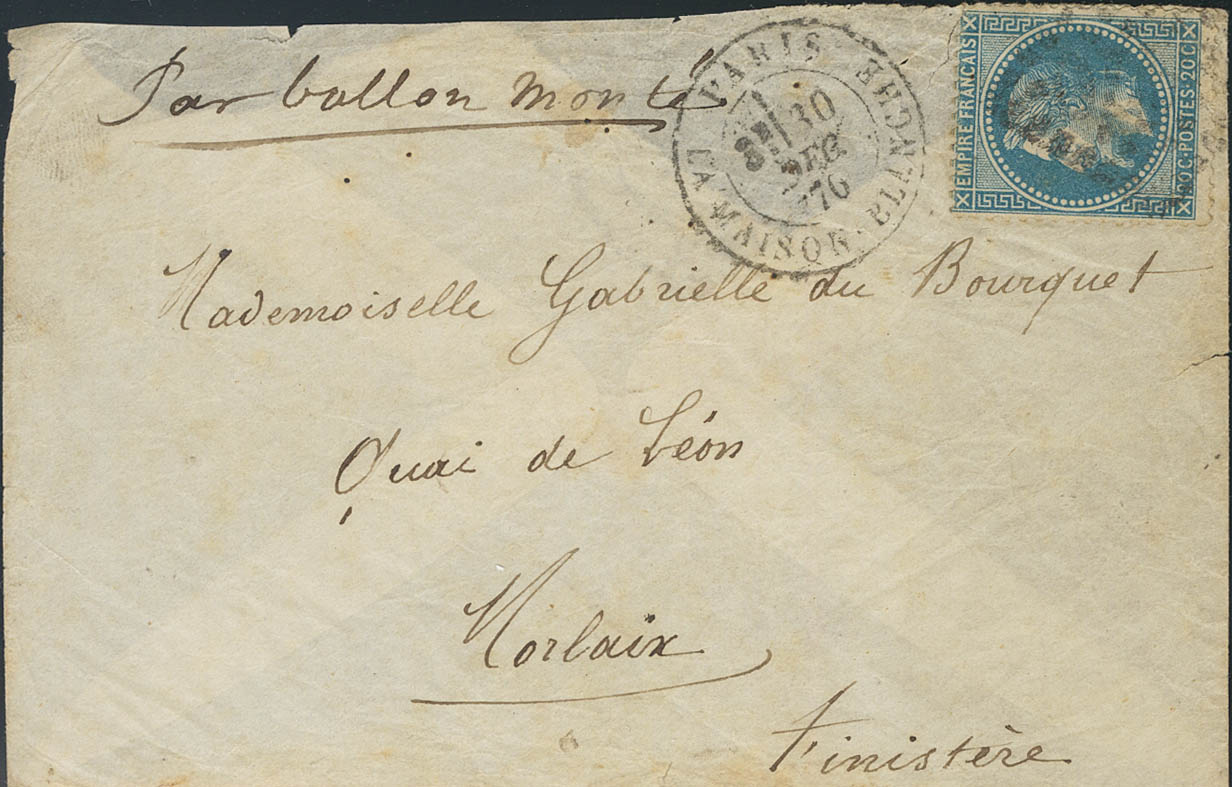 Par ballon monté
PARIS LA MAISON-BLANCHE
30
DEC
70
EMPIRE FRANÇAIS
20 C·POSTES·20 C
Mademoiselle Gabrielle du Bourquet
Quai de Léon
Morlaix
Finistère